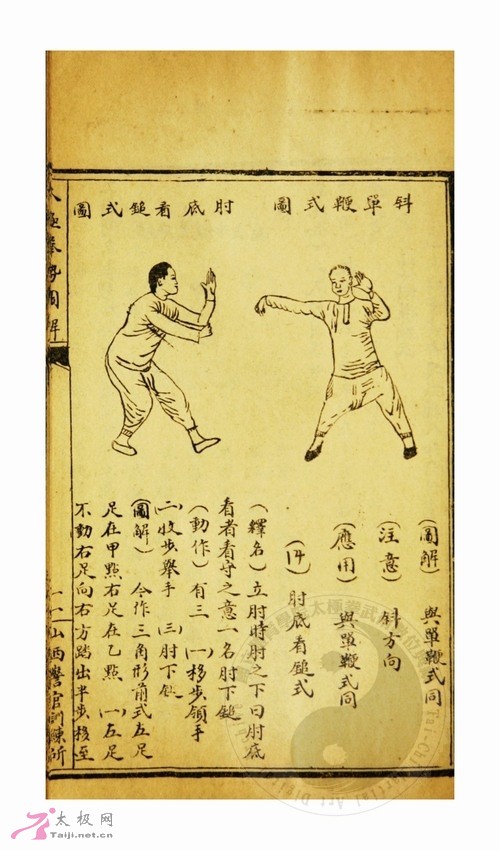 斜單鞭式圖
肘底看鎚式圖
(圖解) 與單鞭式同
(注意) 斜方向
(應用) 與單鞭式同
肘底看鎚式
(釋名) 立肘時肘之下曰肘底
看者看守之意一名肘下鎚
(動作) 有三 一移步領手
二收步舉手 三肘下鎚
(圖解) 今作三角形前式左足
足在甲點右足在乙點 一左足
不動右足向右方踏出半步移至
太極拳勢圖解
山西警官訓練所
太极网
Taiji.net.cn